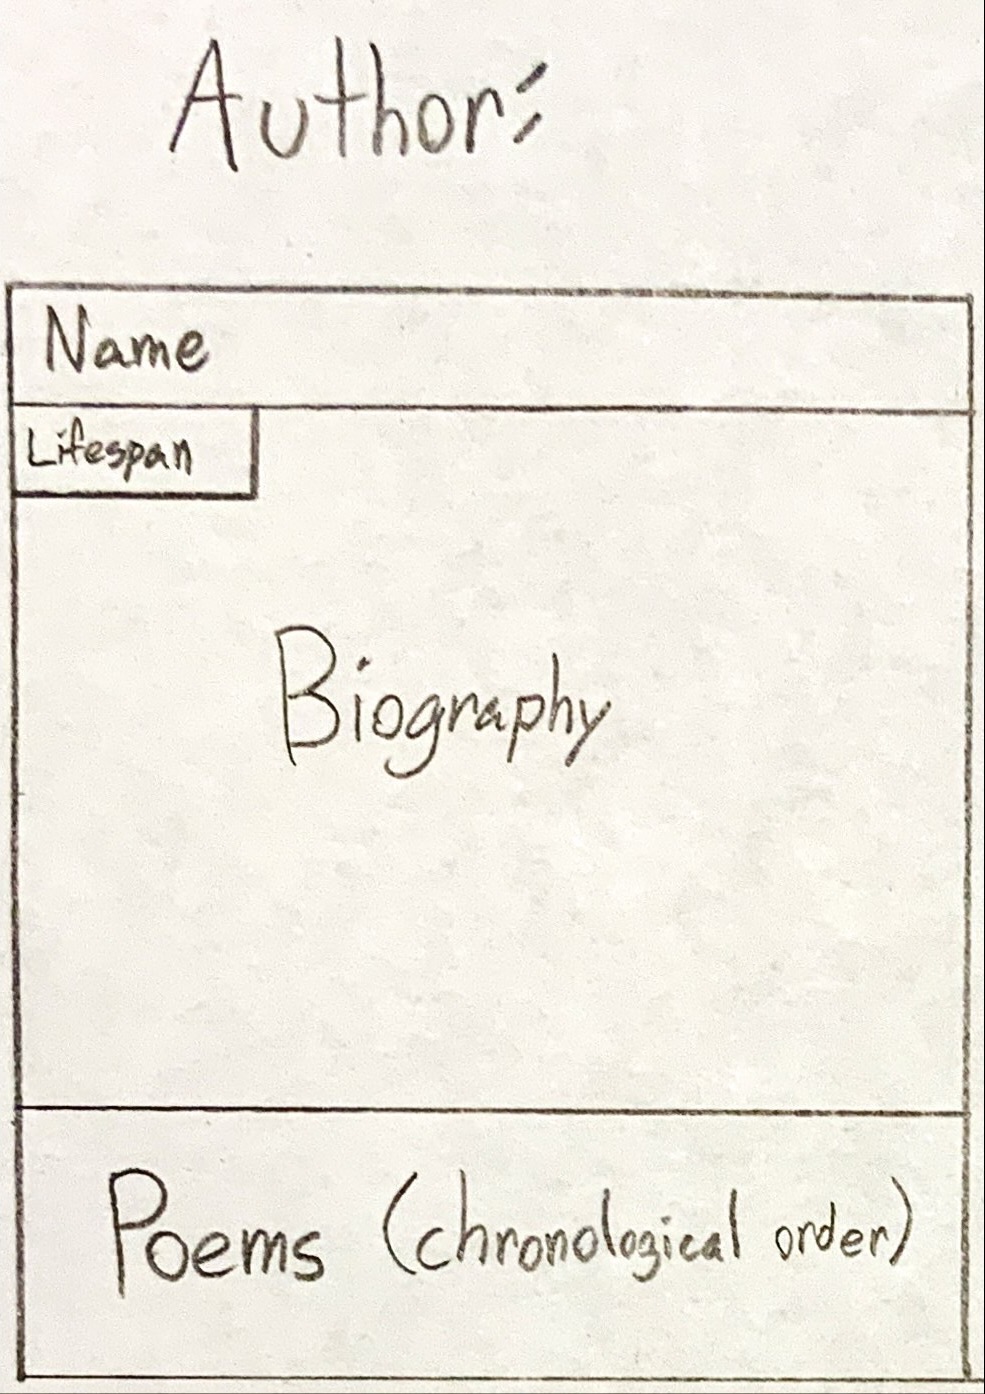 Author:
Name
Lifespan
Biography
Poems (chronological order)